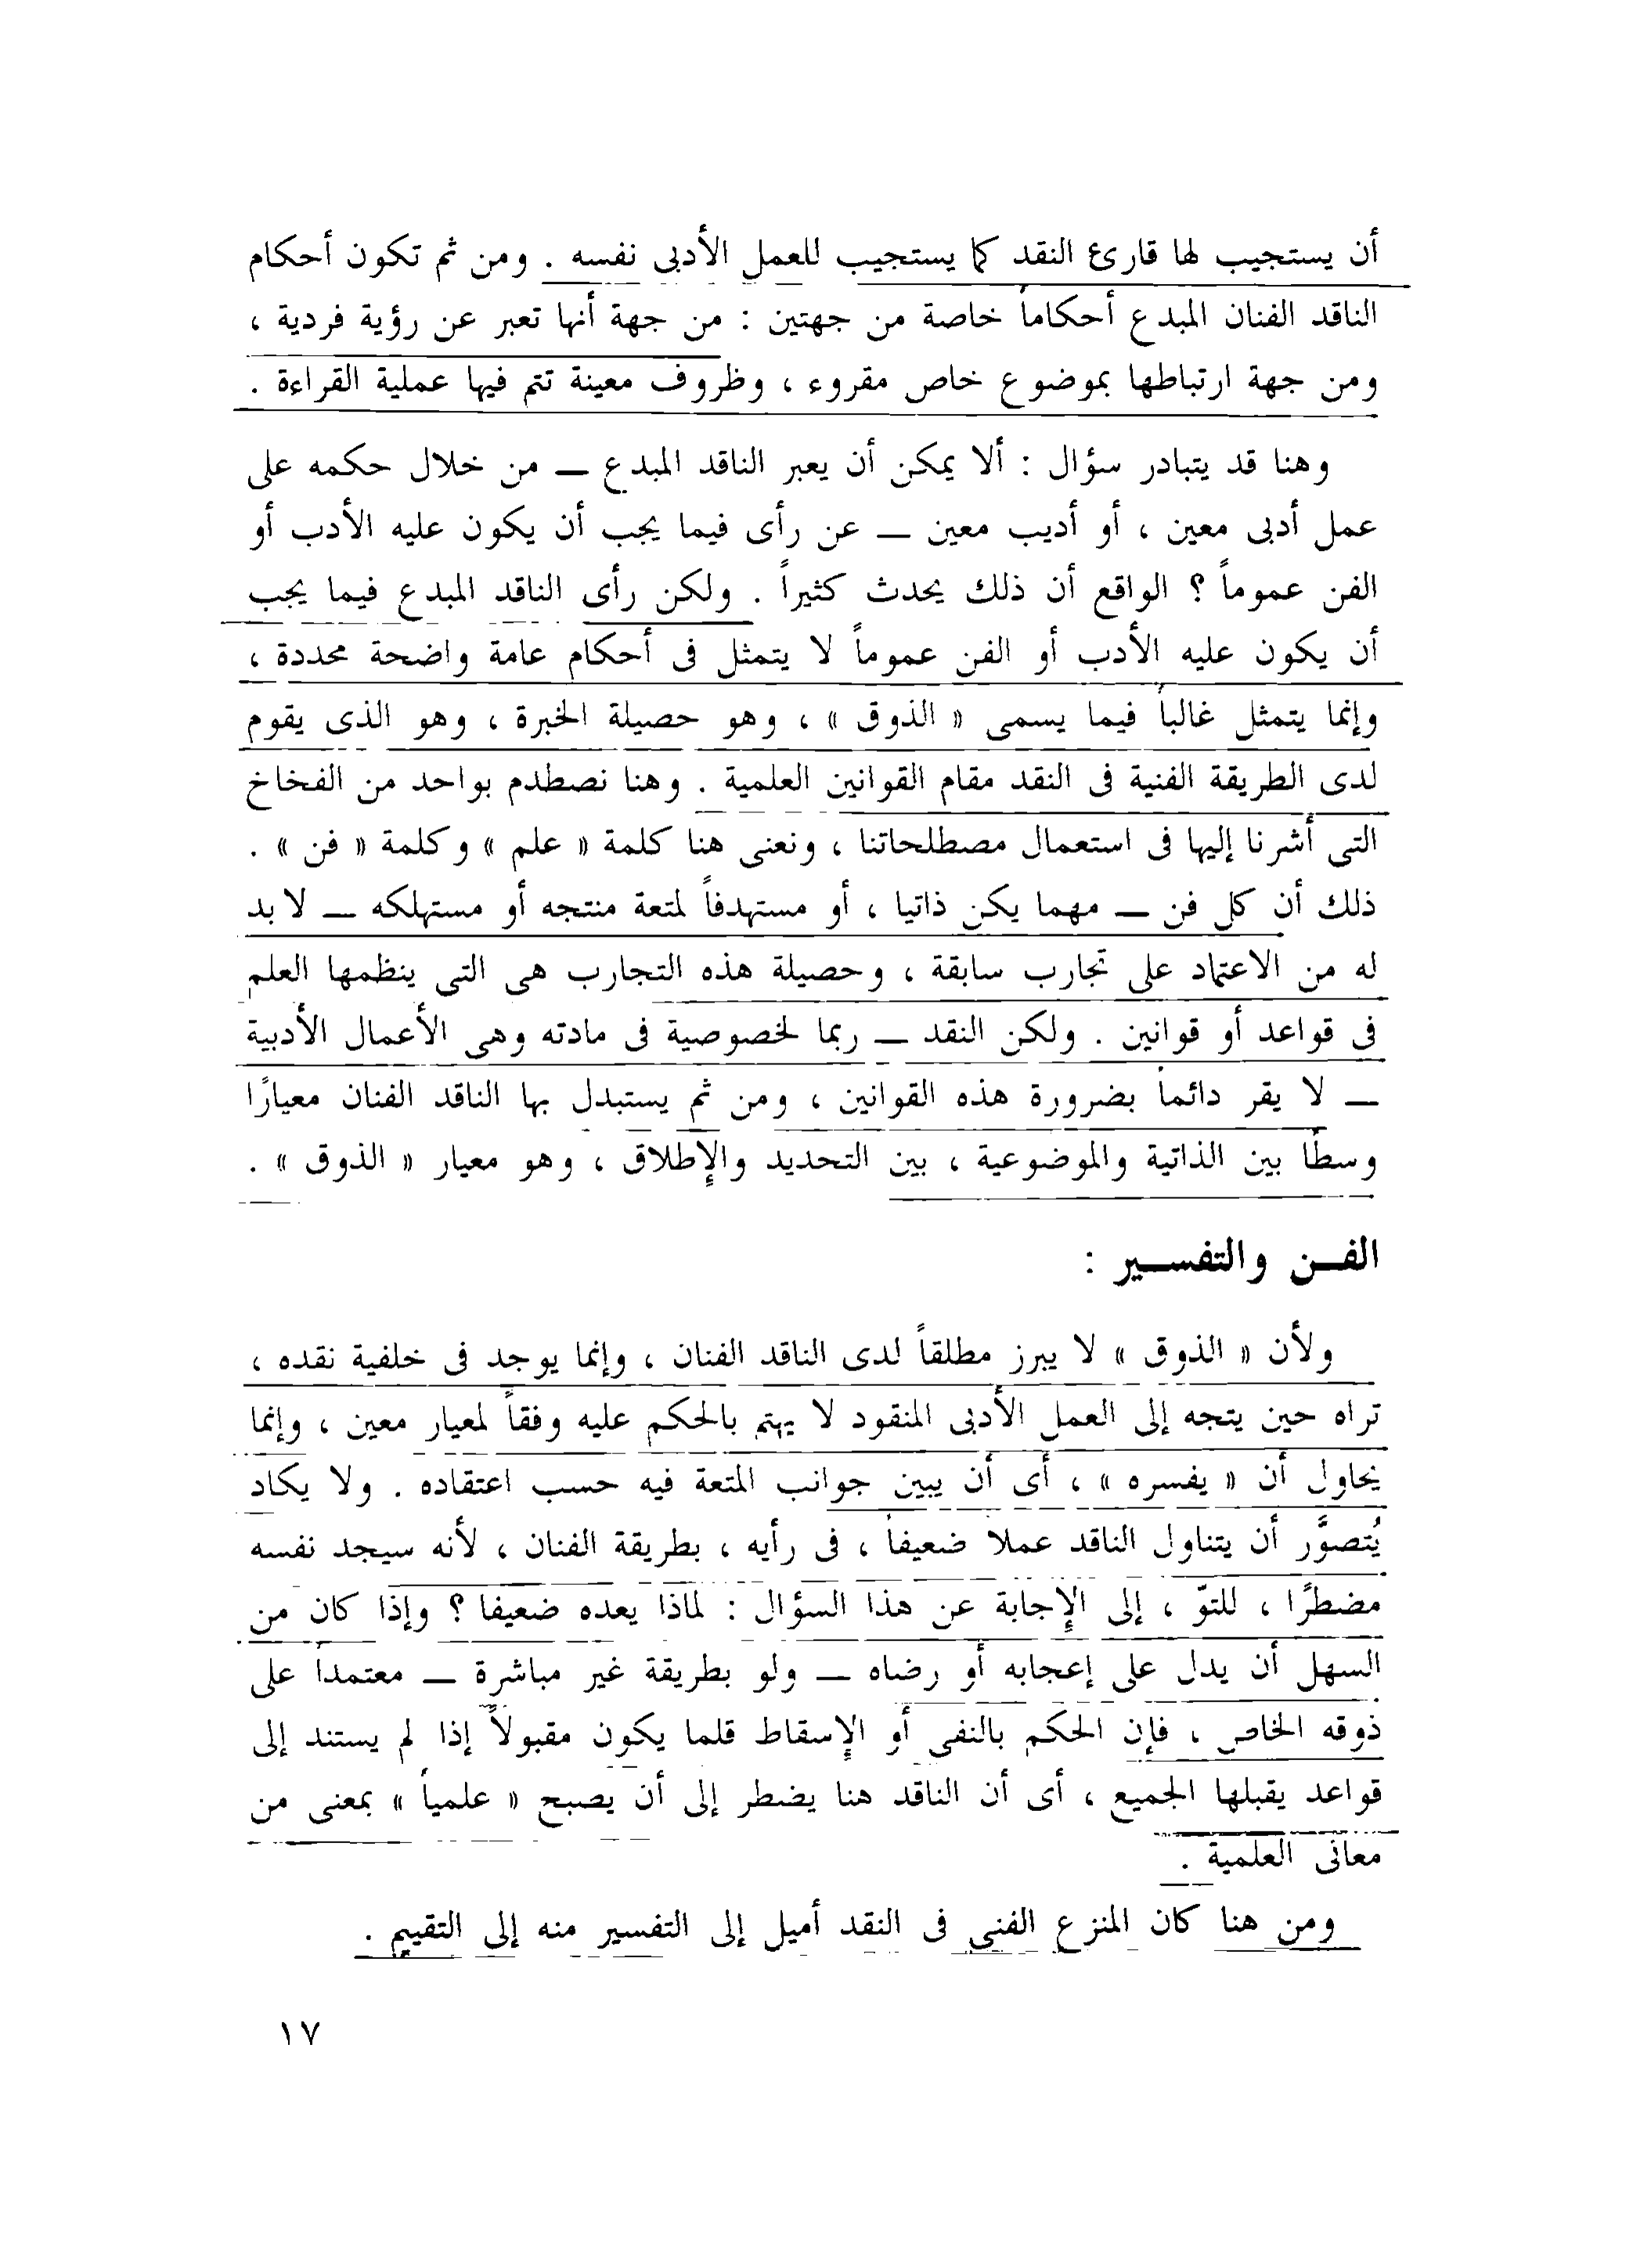 أن يستجيب لها قارئ النقد كما يستجيب للعمل الأدبى نفسه . ومن ثم تكون أحكام
الناقد الفنان المبدع أحكاماً خاصة من جهتين : من جهة أنها تعبر عن رؤية فردية ،
ومن جهة ارتباطها بموضوع خاص مقروء ، وظروف معينة تتم فيها عملية القراءة .
وهنا قد يتبادر سؤال : ألا يمكن أن يعبر الناقد المبدع — من خلال حكمه على
عمل أدبى معين ، أو أديب معين — عن رأى فيما يجب أن يكون عليه الأدب أو
الفن عموماً ؟ الواقع أن ذلك يحدث كثيراً . ولكن رأى الناقد المبدع فيما يجب
أن يكون عليه الأدب أو الفن عموماً لا يتمثل فى أحكام عامة واضحة محددة ،
وإنما يتمثل غالباً فيما يسمى « الذوق » ، وهو حصيلة الخبرة ، وهو الذى يقوم
لدى الطريقة الفنية فى النقد مقام القوانين العلمية . وهنا نصطدم بواحد من الفخاخ
التى أشرنا إليها فى استعمال مصطلحاتنا ، ونعنى هنا كلمة « علم » وكلمة « فن » .
ذلك أن كل فن — مهما يكن ذاتيا ، أو مستهدفاً لمتعة منتجه أو مستهلكه — لا بد
له من الاعتماد على تجارب سابقة ، وحصيلة هذه التجارب هى التى ينظمها العلم
فى قواعد أو قوانين . ولكن النقد — ربما لخصوصية فى مادته وهى الأعمال الأدبية
— لا يقر دائماً بضرورة هذه القوانين ، ومن ثم يستبدل بها الناقد الفنان معيارًا
وسطًا بين الذاتية والموضوعية ، بين التحديد والإطلاق ، وهو معيار « الذوق » .
الفـن والتفسـير :
ولأن « الذوق » لا يبرز مطلقاً لدى الناقد الفنان ، وإنما يوجد فى خلفية نقده ،
تراه حين يتجه إلى العمل الأدبى المنقود لا يهتم بالحكم عليه وفقاً لمعيار معين ، وإنما
يحاول أن « يفسره » ، أى أن يبين جوانب المتعة فيه حسب اعتقاده . ولا يكاد
يُتصوَّر أن يتناول الناقد عملا ضعيفاً ، فى رأيه ، بطريقة الفنان ، لأنه سيجد نفسه
مضطرًا ، للتوّ ، إلى الإجابة عن هذا السؤال : لماذا يعده ضعيفا ؟ وإذا كان من
السهل أن يدل على إعجابه أو رضاه — ولو بطريقة غير مباشرة — معتمداً على
ذوقه الخاص ، فإن الحكم بالنفى أو الإسقاط قلما يكون مقبولاً إذا لم يستند إلى
قواعد يقبلها الجميع ، أى أن الناقد هنا يضطر إلى أن يصبح « علمياً » بمعنى من
معانى العلمية .
ومن هنا كان المنزع الفنى فى النقد أميل إلى التفسير منه إلى التقييم .
١٧